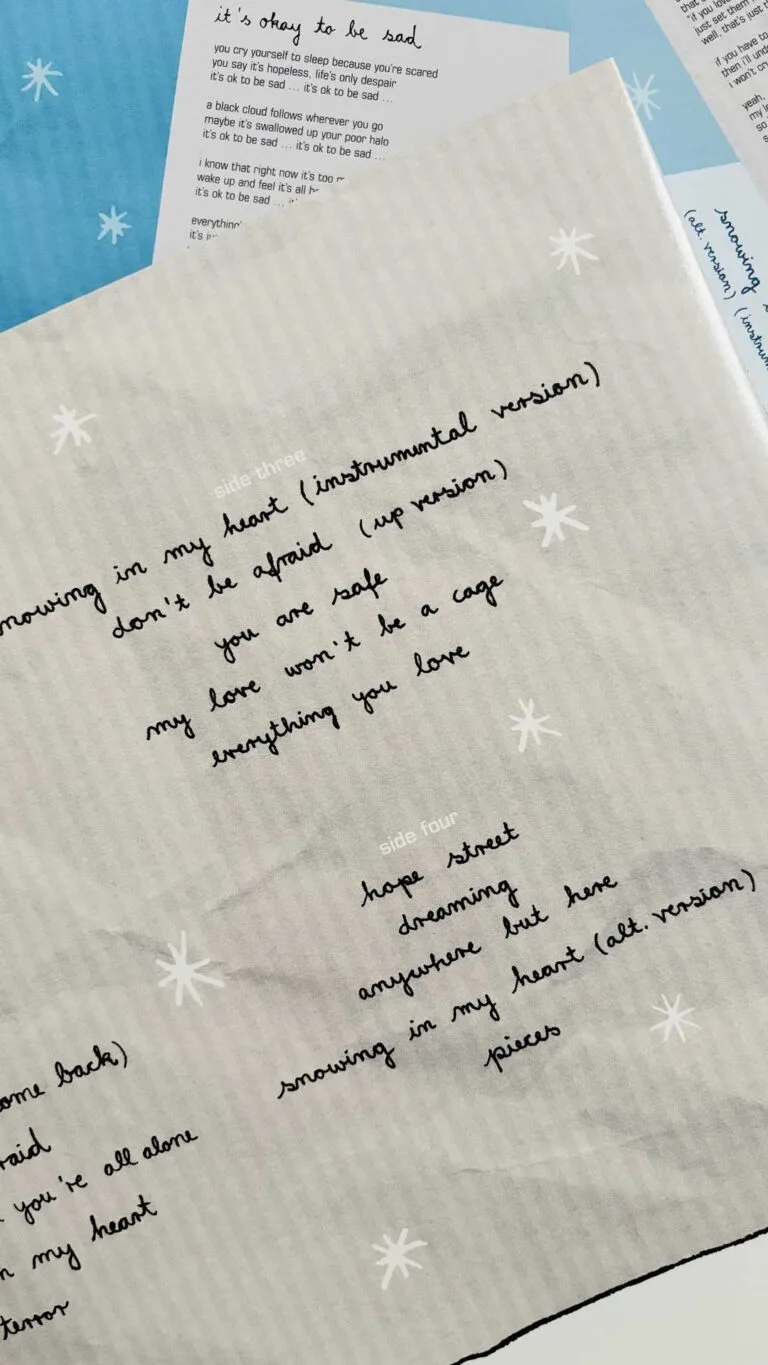 it's okay to be sad
you cry yourself to sleep because you're scared
you say it's hopeless, life's only despair
it's ok to be sad ... it's ok to be sad ...
a black cloud follows wherever you go
maybe it's swallowed up your poor halo
it's ok to be sad ... it's ok to be sad ...
i know that right now it's too
wake up and feel it's all
it's ok to be sad ...
everything'
it's
"if you
just set them
well, that's just
if you have to
then i'll
i won't
yeah,
my
so
snowing
(alt. version) (instrum
side three
nowing in my heart (instrumental version)
don't be afraid (up version)
you are safe
my love won't be a cage
everything you love
side four
hope street
dreaming
anywhere but here
snowing in my heart (alt. version)
pieces
ome back)
raid
you're all alone
n my heart
terror